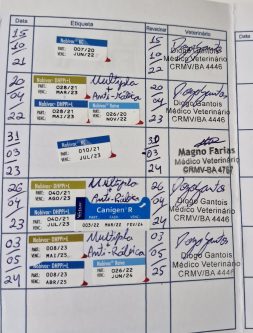 Data Etiqueta Revacinar Veterinário
15
10
21
Nobivac KC
PART.: 007/20
VENC.: JUN/22
15
10
22
Diogo Gantois
Médico Veterinário
CRMV/BA 4446
20
04
22
Nobivac DHPPi+L
PART.: 028/21
VENC.: MAR/23
Múltipla
Anti-Rábica
Nobivac Raiva
PART.: 026/20
VENC.: NOV/22
20
04
23
Diogo Gantois
Médico Veterinário
CRMV/BA 4446
31
03
23
Nobivac KC
PART.: 010/21
VENC.: JUL/23
30
03
24
Magno Farias
Médico Veterinário
CRMV/BA 4767
26
04
23
Nobivac DHPPi+L
PART.: 040/21
VENC.: AGO/23
Múltipla
Anti-Rábica
PART.: 040/21
VENC.: JUL/23
Canigen R
26
04
24
Diogo Gantois
Médico Veterinário
CRMV/BA 4446
03
05
24
Nobivac DHPPi+L
PART.: 005/23
VENC.: MAI/25
Múltipla
Anti-Rábica
PART.: 003/23
VENC.: ABR/25
Nobivac Raiva
PART.: 026/22
VENC.: JUN/25
03
05
25
Diogo Gantois
Médico Veterinário
CRMV/BA 4446